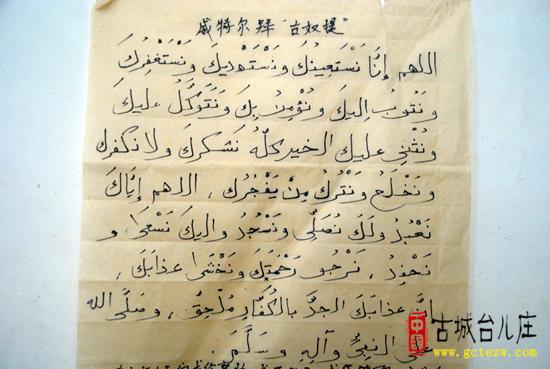 威特尔拜“古奴提”
اللهم إنَّا نَسْتَعِينُكَ وَنَسْتَهْدِيكَ وَنَسْتَغْفِرُكَ
وَنَتُوبُ إِلَيكَ وَنُؤْمِنُ بِكَ وَنَتَوَكَّلُ عَلَيكَ
وَنُثْنِى عَلَيكَ الخير كُلَّهُ نَشكرك ولا نكفرك
وَنَخْلَعُ وَنَتْرُكُ مِنْ يَفْجُرُكَ ، اللهم إيَّاكَ
نَعْبُدُ ولَكَ نُصَلِّى وَنَسْجُدُ وإليكَ نَسْعَى و
نَحْفِدُ ، نَرْجُو رَحْمَتَكَ وَنَخْشَى عذابَكَ ،
إنَّ عذابَكَ الجدَّ بالكُفَّارِ مُلْحِقٌ ، وَصَلَّى الله
على النبيِّ وَآلِهِ وَسَلَّمَ .
古城台儿庄
www.gctezw.com